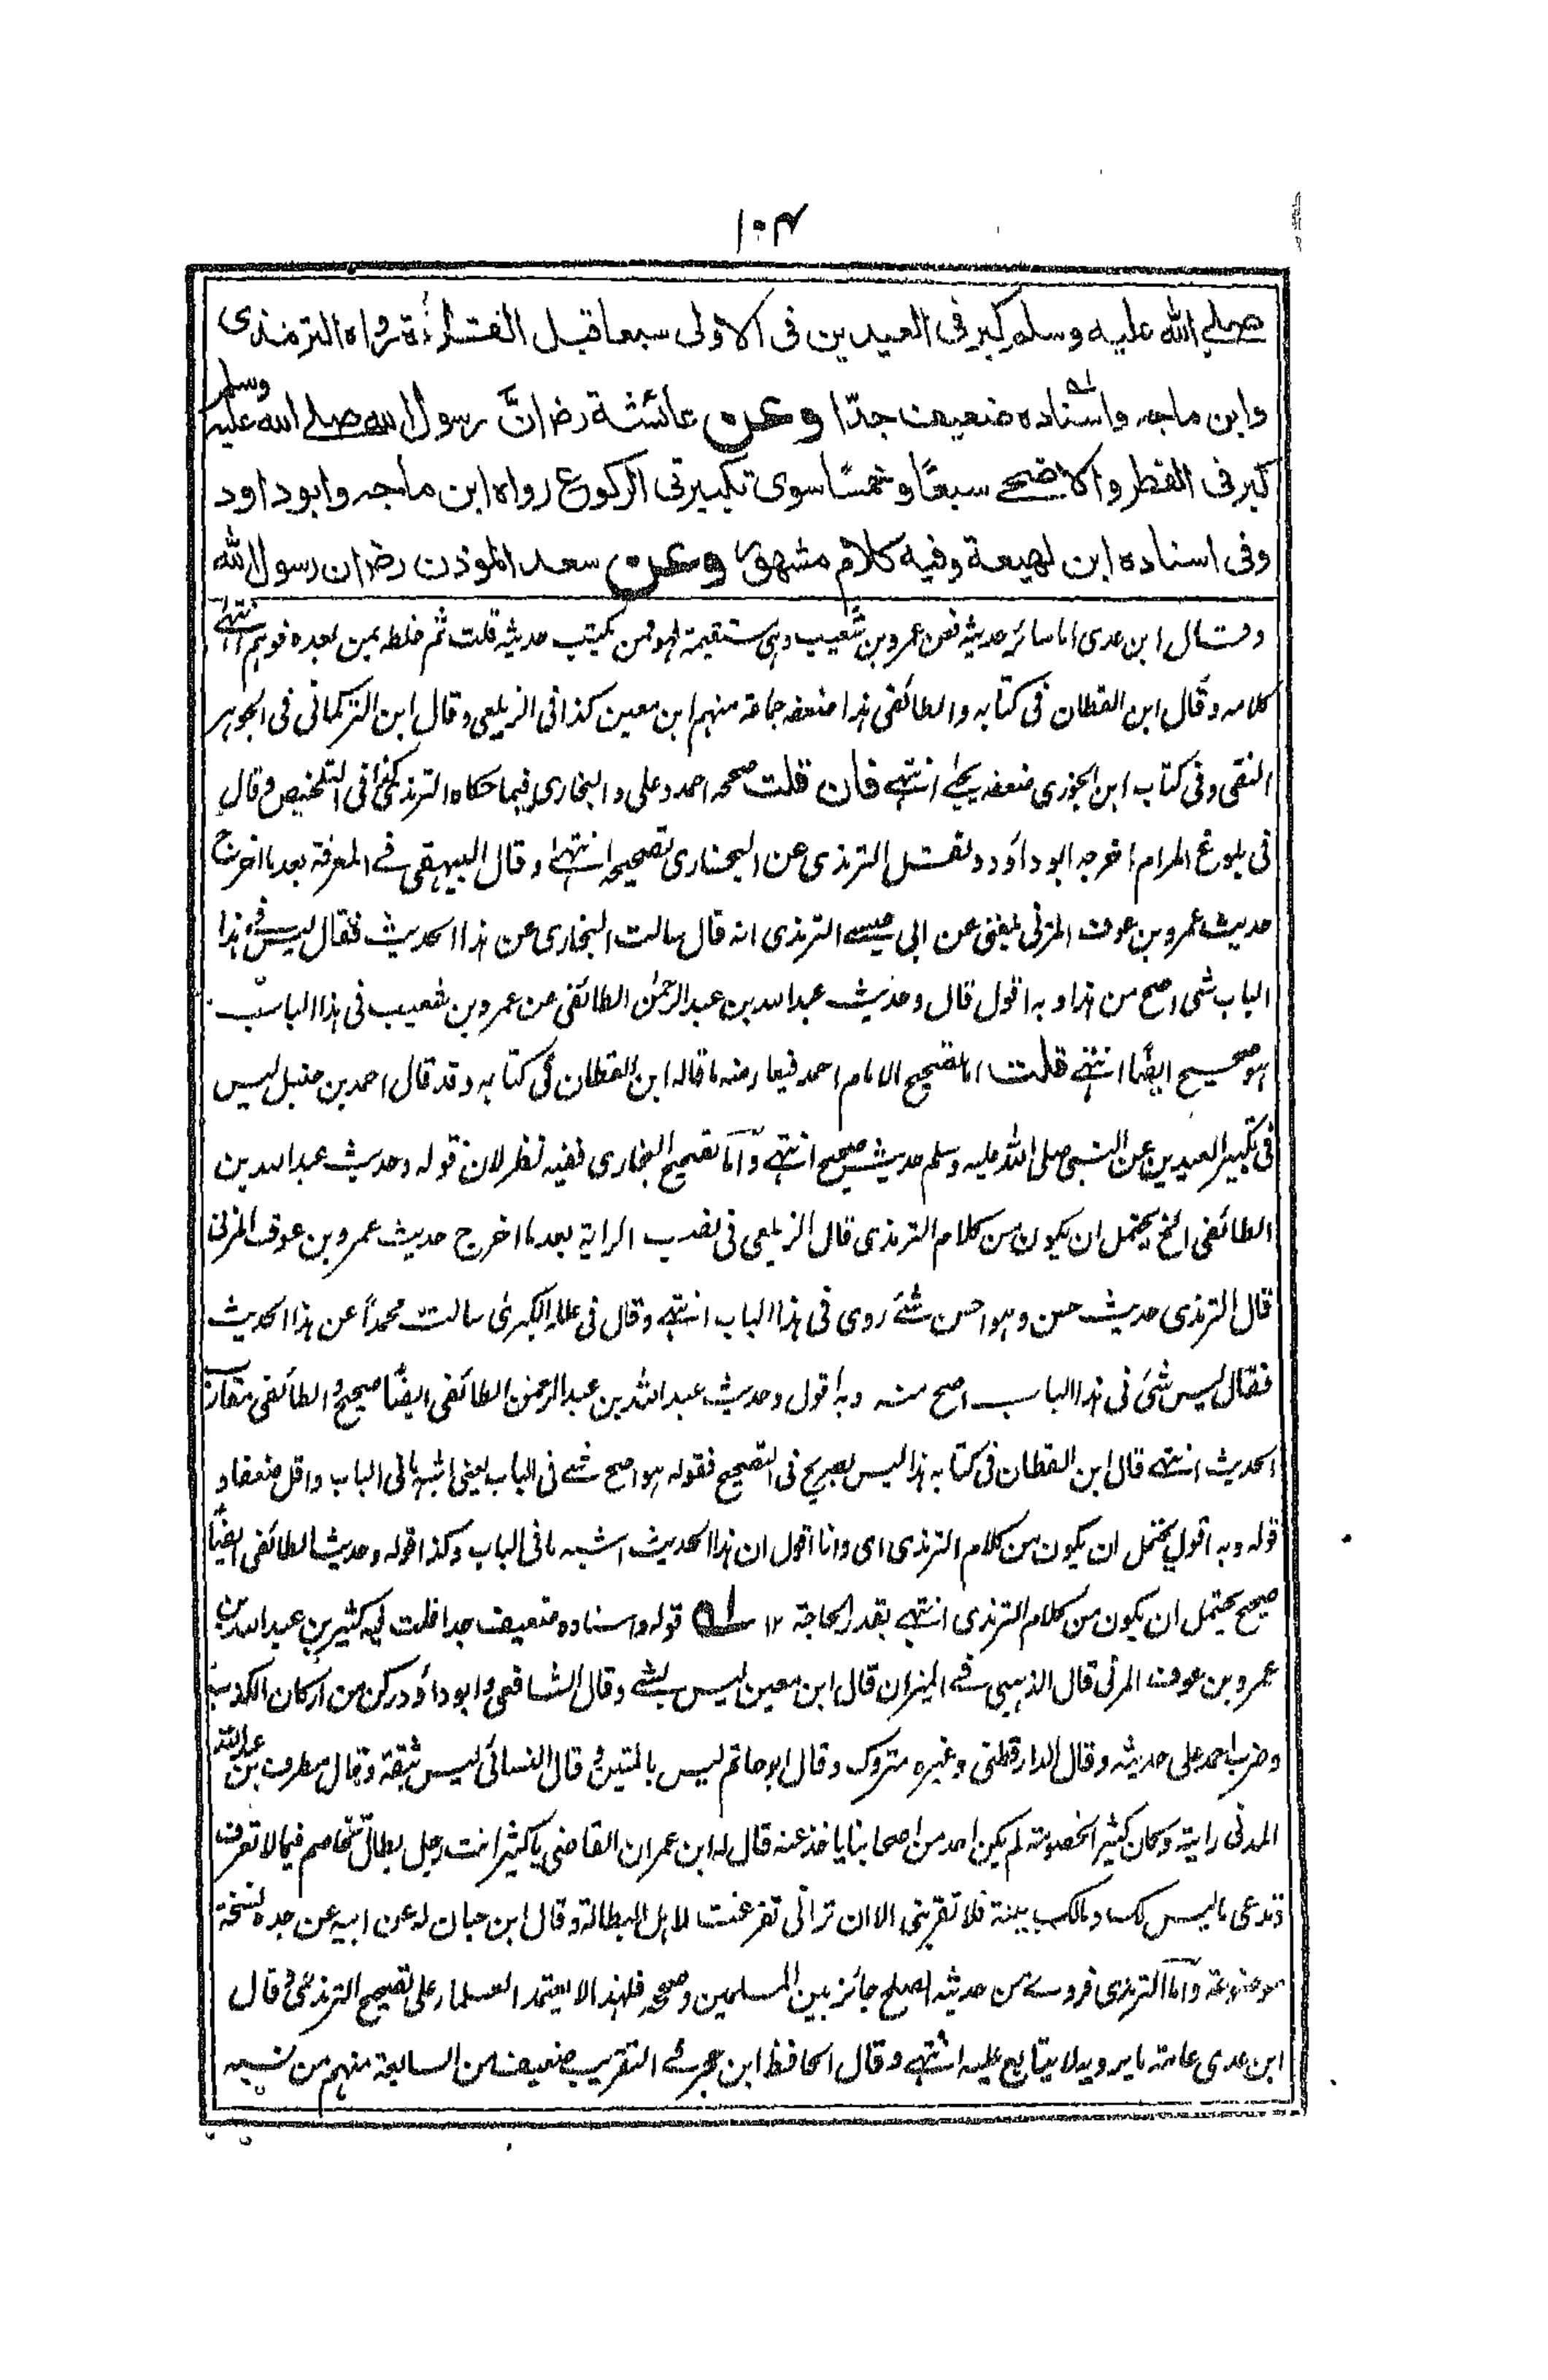 ۱۰۴
صلى الله عليه وسلم كبر فى العيدين فى الاولى سبعا قبل القراءة رواه الترمذى
وابن ماجه واسناده ضعيف جدّا وعن عائشة رض انّ رسول الله صلى الله عليه وسلم
كبر فى الفطر والاضحى سبعًا وخمسًا سوى تكبيرتى الركوع رواه ابن ماجه وابو داود
وفى اسناده ابن لهيعة وفيه كلام مشهور وعن سعد المؤذن رض ان رسول الله
وقال ابن عدى اما سائر حديثه فعن عمرو بن شعيب وهى مستقيمة فهو ممن يكتب حديثه قلت ثم خلطه بمن بعده فوهم انتهى
كلامه وقال ابن القطان فى كتابه والطائفى هذا ضعفه جماعة منهم ابن معين كذا فى الزيلعى وقال ابن التركمانى فى الجوهر
النقى وفى كتاب ابن الجوزى ضعفه يحيى انتهى فان قلت صححه احمد وعلى والبخارى فيما حكاه الترمذى كذا فى التلخيص وقال
فى بلوغ المرام اخرجه ابو داؤد ونقل الترمذى عن البخارى تصحيحه انتهى وقال البيهقى فى المعرفة بعد ما اخرج
حديث عمرو بن عوف المزنى بلغنى عن ابى عيسى الترمذى انه قال سالت البخارى عن هذا الحديث فقال ليس فى هذا
الباب شى اصح من هذا وبه اقول قال وحديث عبد الله بن عبد الرحمٰن الطائفى عن عمرو بن شعيب فى هذا الباب
هو صحيح ايضًا انتهى قلت اما تصحيح الامام احمد فيعارضه ما قاله ابن القطان فى كتابه وقد قال احمد بن حنبل ليس
فى تكبير العيدين عن النبى صلى الله عليه وسلم حديث صحيح انتهى وّامّا تصحيح البخارى ففيه نظر لان قوله وحديث عبد الله بن
الطائفى الخ يحتمل ان يكون من كلام الترمذى قال الزيلعى فى نصب الراية بعد ما اخرج حديث عمرو بن عوف المزنى
قال الترمذى حديث حسن وهو احسن شئ روى فى هذا الباب انتهى وقال فى علله الكبرىٰ سالت محمداً عن هذا الحديث
فقال ليس شئ فى هذا الباب اصح منه وبه اقول وحديث عبد الله بن عبد الرحمٰن الطائفى ايضًا صحيح والطائفى مقارب
الحديث انتهى قال ابن القطان فى كتابه هذا ليس بصريح فى التصحيح فقوله هو اصح شئ فى الباب يعنى اشبه ما فى الباب واقل ضعفا و
قوله وبه اقول يحتمل ان يكون من كلام الترمذى اى وانا اقول ان هذا الحديث اشبه ما فى الباب وكذا قوله وحديث الطائفى ايضًا
صحيح يحتمل ان يكون من كلام الترمذى انتهى بقدر الحاجة ۱۲ قوله واسناده ضعيف جدا قلت فيه كثير بن عبد الله بن
عمرو بن عوف المزنى قال الذهبى فى الميزان قال ابن معين ليس بشئ وقال الشافعى وابو داؤد ركن من اركان الكذب
وضرب احمد على حديثه وقال الدارقطنى وغيره متروك وقال ابو حاتم ليس بالمتين وقال النسائى ليس بثقة وقال مطرف بن عبد الله
المدنى رايته وكان كثير الخصومة لم يكن احد من اصحابنا ياخذ عنه قال له ابن عمران القاضى يا كثير انت رجل بطال تخاصم فيما لا تعرف
وتدعى ما ليس لك ومالك بينة فلا تقربنى الا ان ترانى تفرغت لاهل البطالة وقال ابن حبان له عن ابيه عن جده نسخة
موضوعة وامّا الترمذى فروى من حديثه الصلح جائز بين المسلمين وصححه فلهذا لا يعتمد العلماء على تصحيح الترمذى وقال
ابن عدى عامة ما يرويه لا يتابع عليه انتهى وقال الحافظ ابن حجر فى التقريب ضعيف من السابعة منهم من نسبه